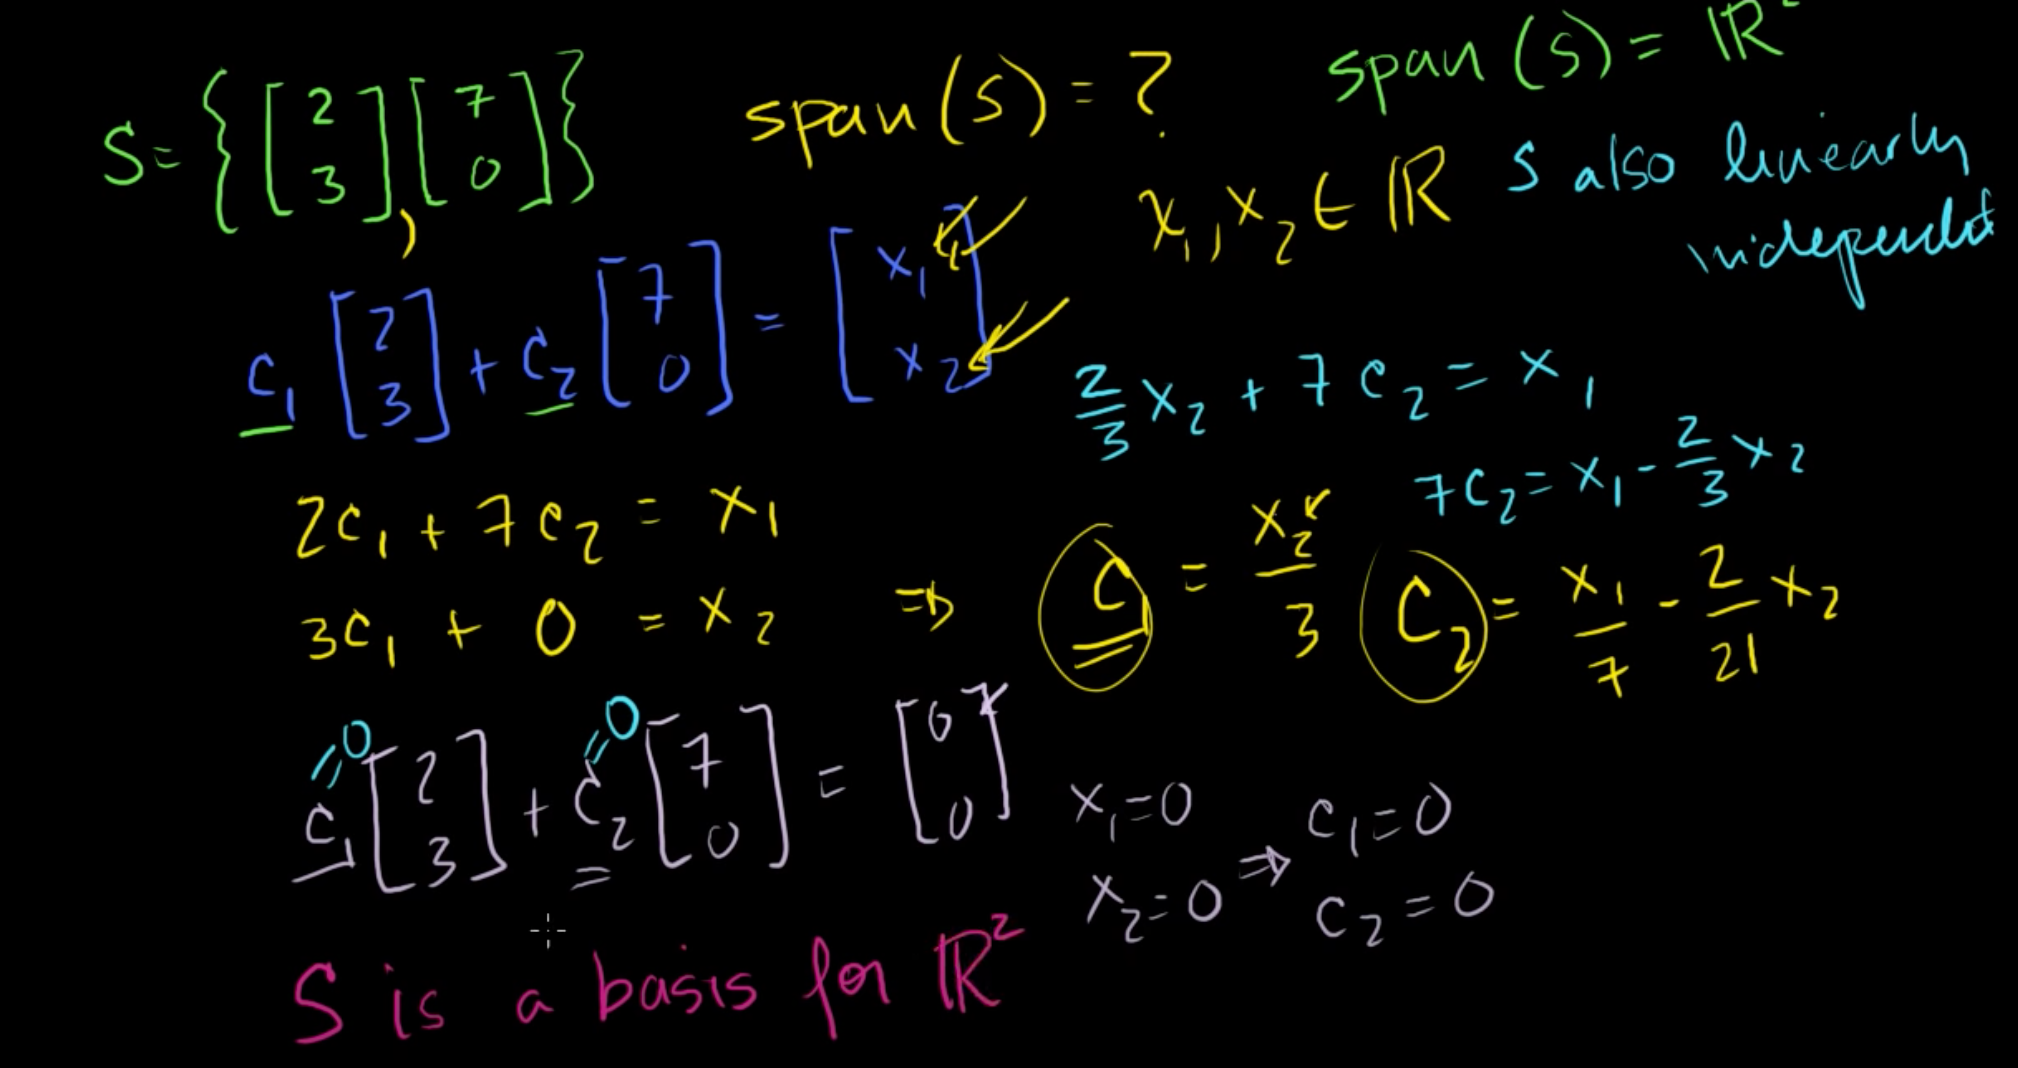 S = { [2 3] , [7 0] }
span (S) = ?
span (S) = ℝ²
x₁, x₂ ∈ ℝ
S also linearly
independent
c₁ [2 3] + c₂ [7 0] = [x₁ x₂]
2/3 x₂ + 7c₂ = x₁
7c₂ = x₁ - 2/3 x₂
2c₁ + 7c₂ = x₁
3c₁ + 0 = x₂ ⇒ c₁ = x₂/3
c₂ = x₁/7 - 2/21 x₂
=0 =0
c₁ [2 3] + c₂ [7 0] = [0 0]
x₁=0
x₂=0 ⇒ c₁=0
c₂=0
S is a basis for ℝ²